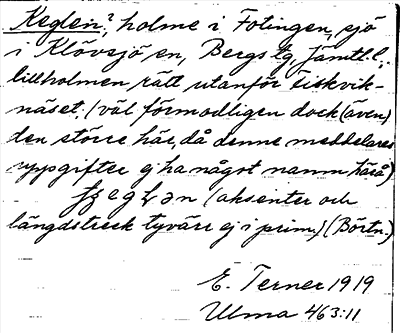 Keglen?, holme i Fotingen, sjö
i Klövsjö sn, Bergs tg, Jämtl. l.,
lillholmen rätt utanför Fiskvik-
näset. (väl förmodligen dock (även)
den större här, då denne meddelares
uppgifter ej ha något namn härå)
(aksenter och
längdstreck tyvärr ej i prim.) (Börtn.)
E. Terner 1919
Ulma 463:11